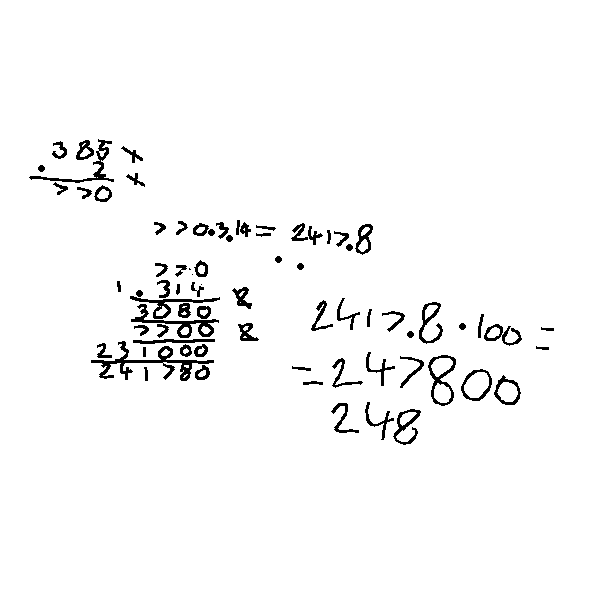 385 x
. 2 x
770
770.3.14= 2417.8
770
1 . 314 &
3080
7700 &
231000
241780
2417.8 . 100 =
= 247800
248